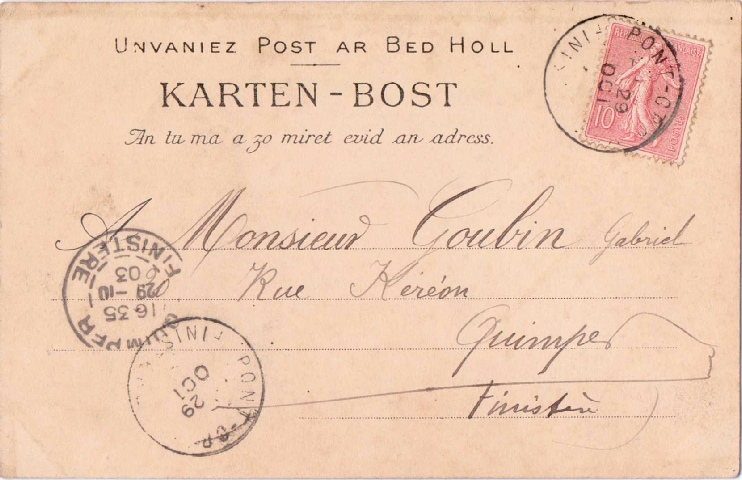 UNVANIEZ POST AR BED HOLL
KARTEN-BOST
An tu ma a zo miret evid an adress.
A Monsieur Goubin Gabriel
Rue Kéréon
Quimper
Finistère
10
PONT-CR
29
OCT
FINISTÈRE
16 35
29 - 10
03
PONT-CR
FINI
29
OCT